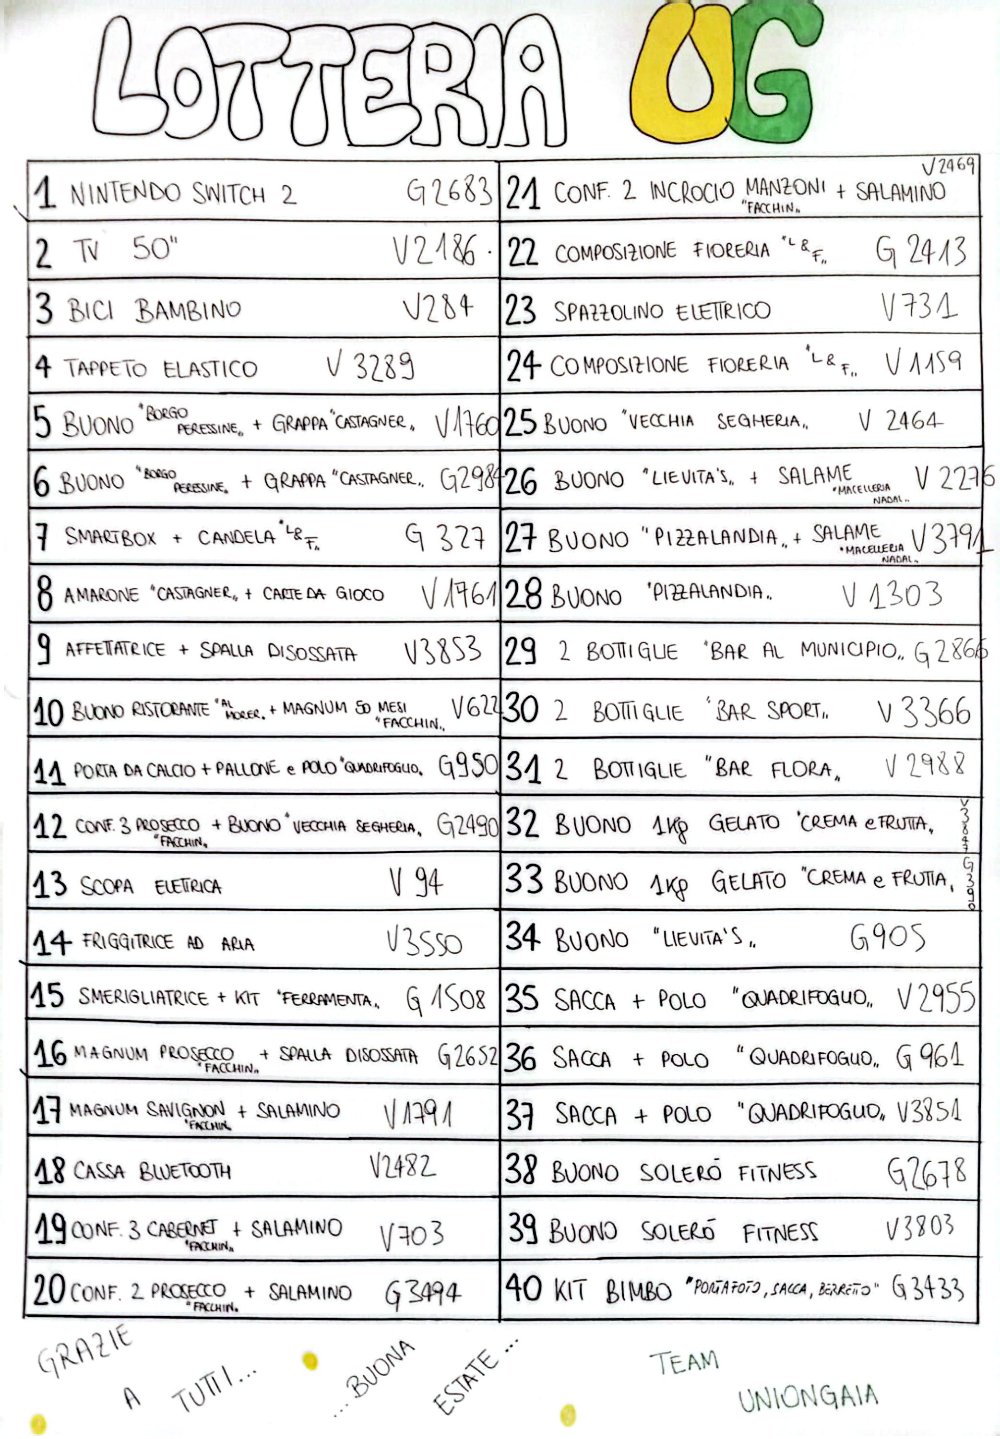 LOTTERIA UG
1 NINTENDO SWITCH 2 G2683
2 TV 50" V2186.
3 BICI BAMBINO V284
4 TAPPETO ELASTICO V 3289
5 BUONO "BORGO PERESSINE" + GRAPPA "CASTAGNER" V1760
6 BUONO "BORGO PERESSINE" + GRAPPA "CASTAGNER" G2984
7 SMARTBOX + CANDELA "L&F" G 327
8 AMARONE "CASTAGNER" + CARTE DA GIOCO V1761
9 AFFETTATRICE + SPALLA DISOSSATA V3853
10 BUONO RISTORANTE "AL MORER" + MAGNUM 50 MESI "FACCHIN" V622
11 PORTA DA CALCIO + PALLONE e POLO "QUADRIFOGLIO" G950
12 CONF. 3 PROSECCO "FACCHIN" + BUONO "VECCHIA SEGHERIA" G2490
13 SCOPA ELETTRICA V 94
14 FRIGGITRICE AD ARIA V3550
15 SMERIGLIATRICE + KIT "FERRAMENTA" G 1508
16 MAGNUM PROSECCO "FACCHIN" + SPALLA DISOSSATA G2652
17 MAGNUM SAVIGNON "FACCHIN" + SALAMINO V1791
18 CASSA BLUETOOTH V2482
19 CONF. 3 CABERNET "FACCHIN" + SALAMINO V703
20 CONF. 2 PROSECCO "FACCHIN" + SALAMINO G3494
21 CONF. 2 INCROCIO MANZONI "FACCHIN" + SALAMINO V2469
22 COMPOSIZIONE FIORERIA "L&F" G 2413
23 SPAZZOLINO ELETTRICO V731
24 COMPOSIZIONE FIORERIA "L&F" V1159
25 BUONO "VECCHIA SEGHERIA" V 2464
26 BUONO "LIEVITA'S" + SALAME "MACELLERIA NADAL" V 2276
27 BUONO "PIZZALANDIA" + SALAME "MACELLERIA NADAL" V3791
28 BUONO "PIZZALANDIA" V 1303
29 2 BOTTIGLIE "BAR AL MUNICIPIO" G2866
30 2 BOTTIGLIE "BAR SPORT" V3366
31 2 BOTTIGLIE "BAR FLORA" V 2988
32 BUONO 1Kg GELATO "CREMA e FRUTTA" V3847
33 BUONO 1Kg GELATO "CREMA e FRUTTA" G390
34 BUONO "LIEVITA'S" G905
35 SACCA + POLO "QUADRIFOGLIO" V2955
36 SACCA + POLO "QUADRIFOGLIO" G 961
37 SACCA + POLO "QUADRIFOGLIO" V3851
38 BUONO SOLERÓ FITNESS G2678
39 BUONO SOLERÓ FITNESS V3803
40 KIT BIMBO "PORTAFOTO, SACCA, BERRETTO" G3433
GRAZIE A TUTTI...
...BUONA ESTATE...
TEAM UNIONGAIA